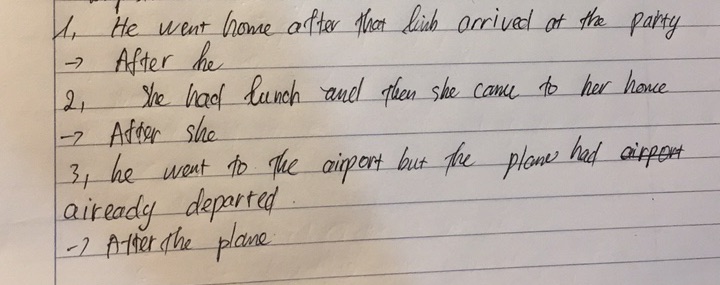 1, He went home after that linh arrived at the party
→ After he
2, She had lunch and then she came to her home
→ After she
3, he went to the airport but the plane had airport
aiready departed.
→ After the plane